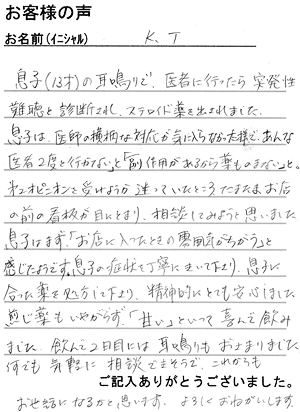 お客様の声
お名前(イニシャル) K.T
息子(13才)の耳鳴りで、医者に行ったら突発性
難聴と診断され、ステロイド薬を出されました。
息子は、医師の横柄な対応が気に入らなかった様で、「あんな
医者2度と行かない」と「副作用があるから薬ものまない」と。
セカンドオピニオンを受けようか迷っていたところたまたまお店
の前の看板が目にとまり、相談してみようと思いました
息子はまず「お店に入ったときの雰囲気がちがう」と
感じたようです。息子の症状を丁寧にきいて下さり、息子に
合った薬を処方して下さり、精神的にとても安心しました
煎じ薬もいやがらず、「甘い」といって喜んで飲み
ました。飲んで2日目には耳鳴りもおさまりました
何でも気軽に相談できそうで、これからも
ご記入ありがとうございました。
お世話になるかと思います。よろしくおねがいします